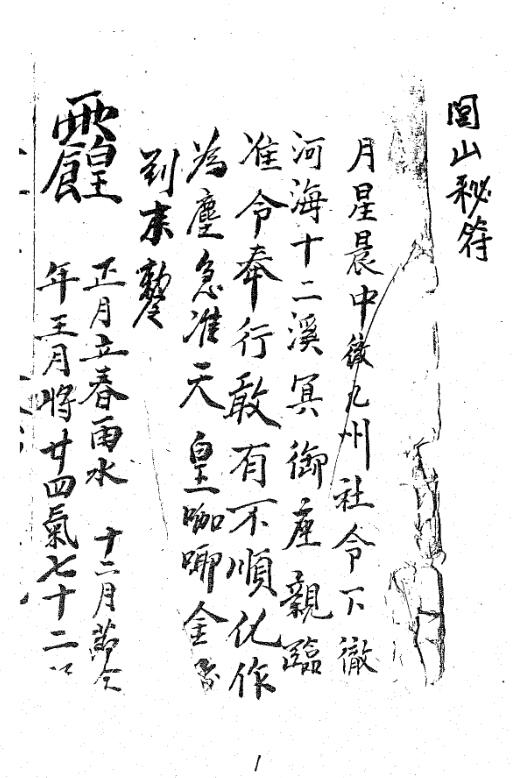 閭山秘符
月星晨中徹九州社令下徹
河海十二溪冥御座親臨
准令奉行敢有不順化作
為塵急准天皇𠹌唧金
到奉勅
正月立春雨水 十二月節令
年王月將廿四氣七十二
1